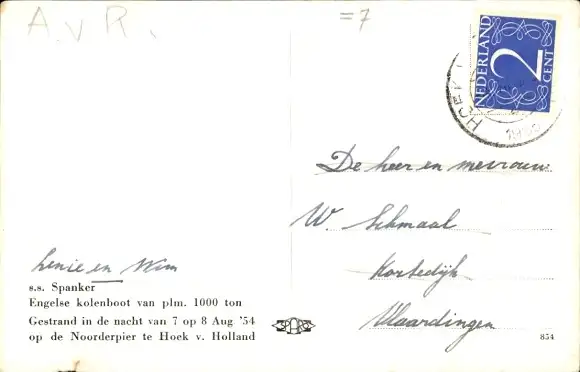 A v R.
=7
NEDERLAND
2
CENT
HOEK
De heer en mevrouw
W. Schmaal
Kortedijk
Vlaardingen
Lenie en Wim
s.s. Spanker
Engelse kolenboot van plm. 1000 ton
Gestrand in de nacht van 7 op 8 Aug '54
op de Noorderpier te Hoek v. Holland
854